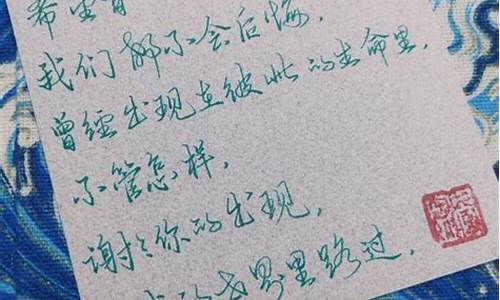 希望有
我们都不会后悔，
曾经出现在彼此的生命里，
不管怎样，
谢谢你的出现，
世界里路过，